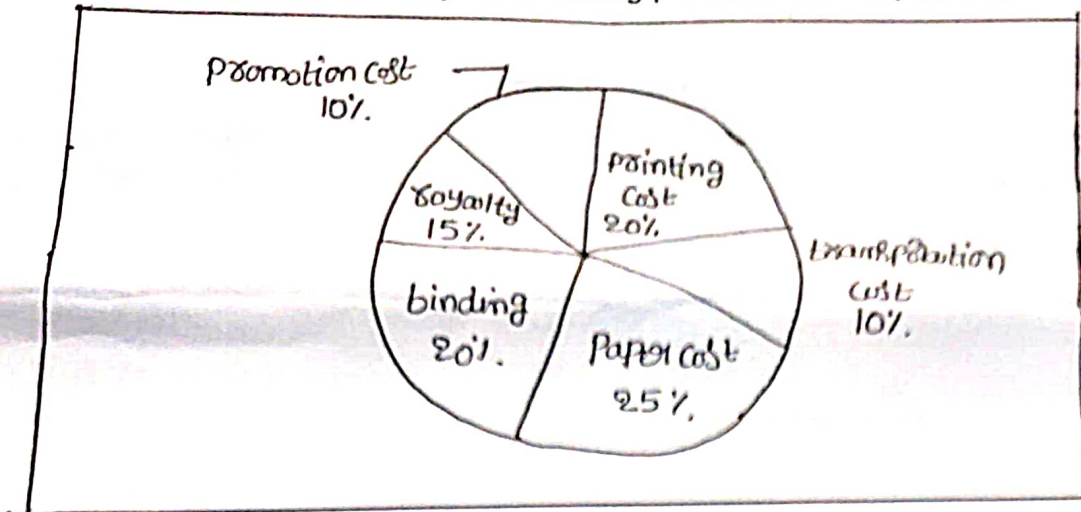 Promotion Cost
10%.
Printing
Cost
20%.
royalty
15%.
transpotation
cost
10%.
binding
20%.
Paper cost
25%.